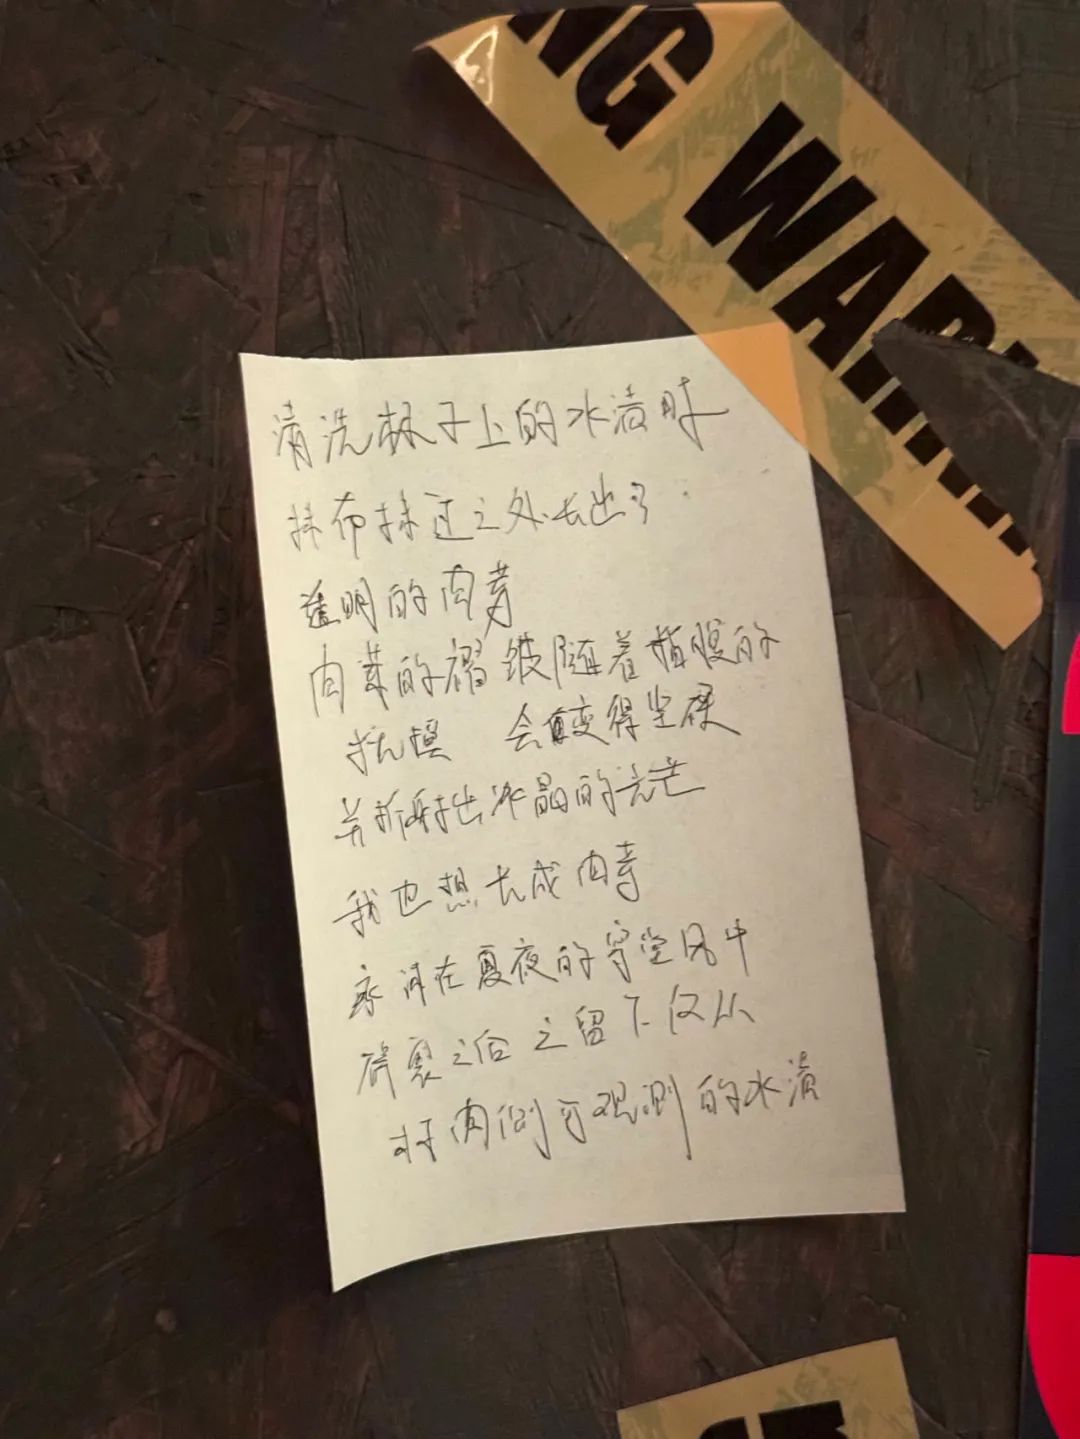 NG WARN
清洗杯子上的水渍时
抹布抹过之处长出了
透明的肉芽
肉芽的褶皱随着指腹的
抚摸 会变得坚硬
并折射出冰晶的光芒
我也想长成肉芽
在夏夜的穿堂风中
碎裂之后 留下仅从
杯内侧可观测的水渍